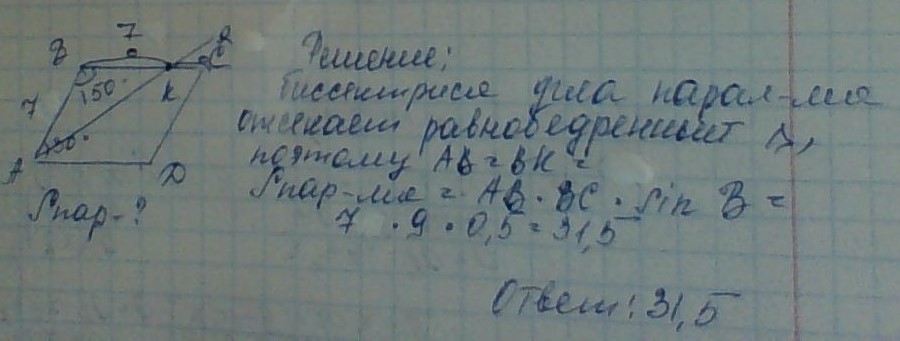 7
B
C
150°
K
7
A
D
Sпар-?
Решение:
Биссектриса угла парал-ма
отсекает равнобедренный Δ,
поэтому AB = BK =
Sпар-ма = AB · BC · sin B =
7 · 9 · 0,5 = 31,5
Ответ: 31,5